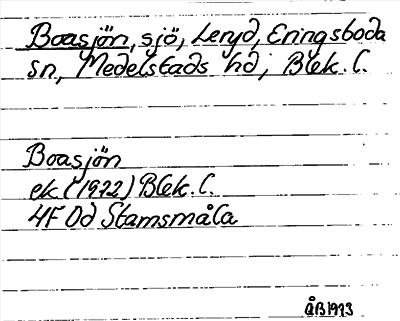 Boasjön, sjö, Leryd, Eringsboda
sn, Medelstads hd, Blek. l.
Boasjön
ek. (1972) Blek. l.
4F 0d Stamsmåla
ÅB 1993